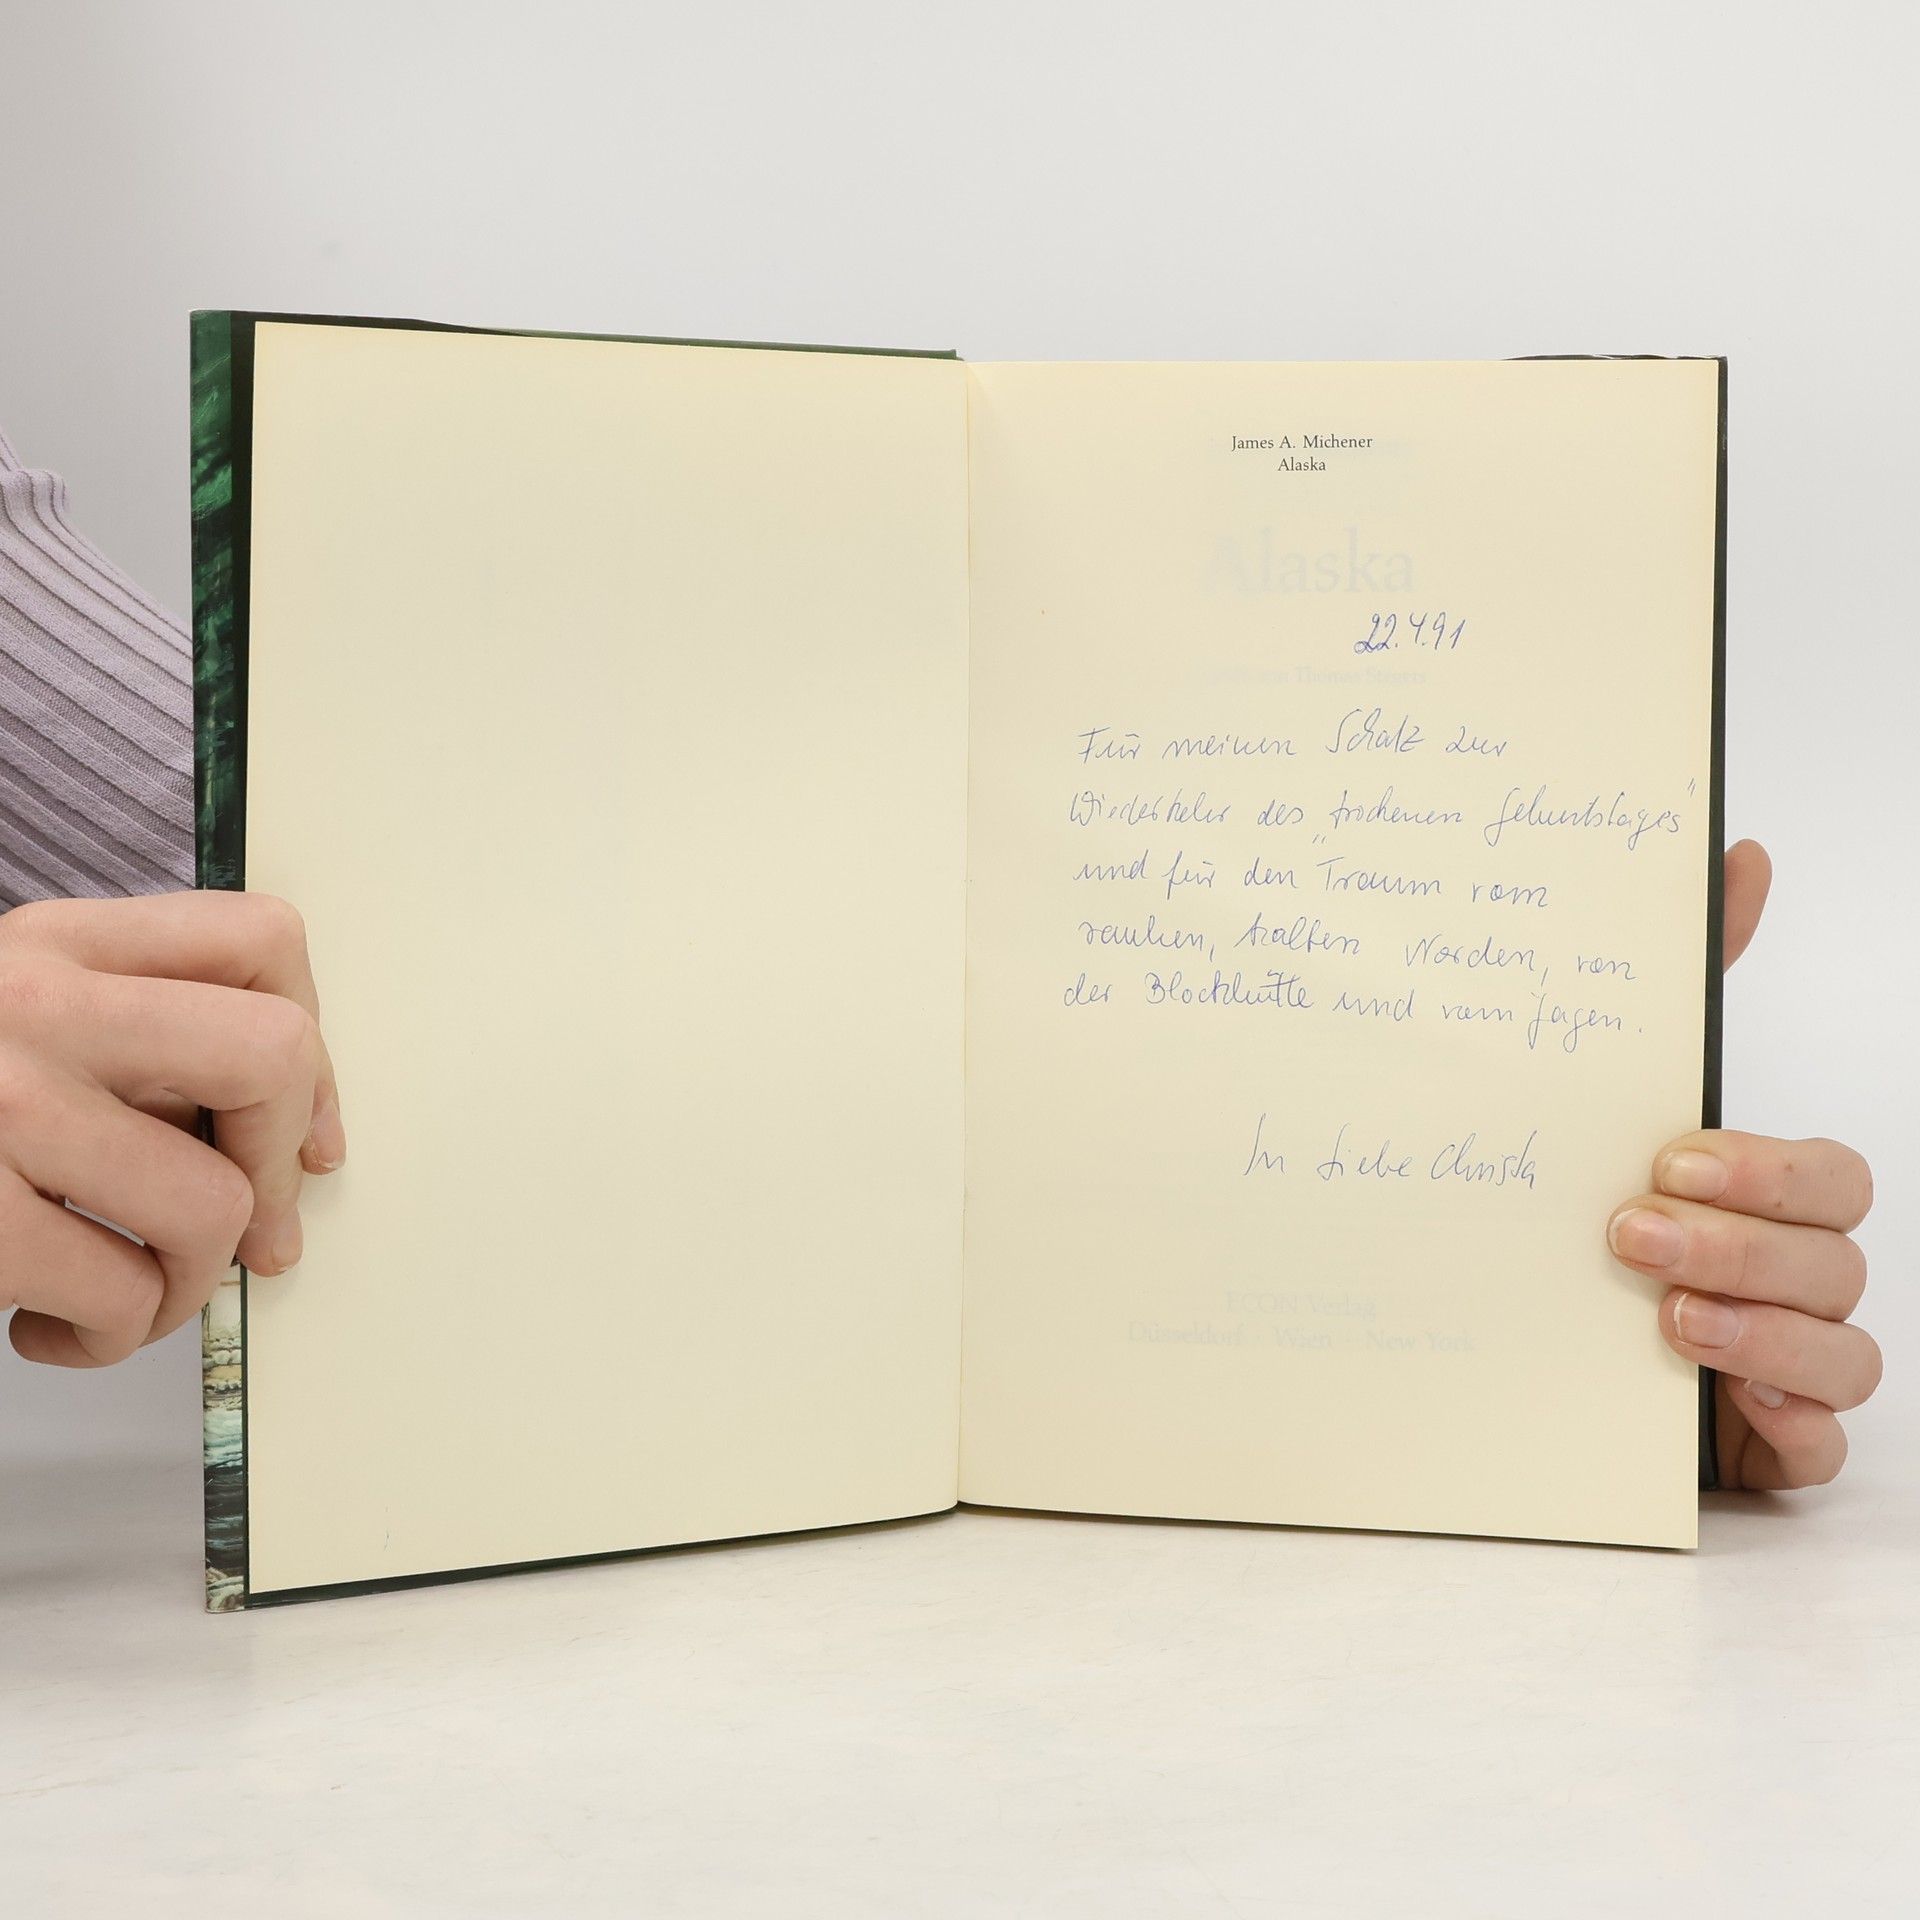 James A. Michener
Alaska
Alaska
22.4.91
Thomas Stegers
Für meinen Schatz zur
Wiederkehr des „trockenen Geburtstages"
und für den Traum vom
rauhen, kalten Norden, von
der Blockhütte und vom Jagen.
In Liebe Christa
ECON Verlag
Düsseldorf · Wien · New York